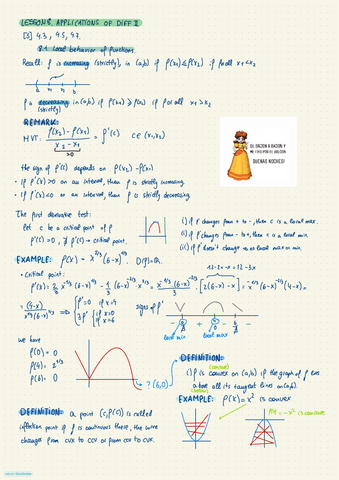 LESSON 8. APPLICATIONS OF DIFF II
[S] 4.3, 4.5, 4.7.
8.1 Local behavior of functions.
Recall: f is increasing (strictly), in (a,b) if f(x₁)≤f(x₂) if for all x₁<x₂
f is decreasing in (a,b) if f(x₁) ≥ f(x₂) if for all x₁ > x₂
(strictly)
REMARK:
MVT: f(x₂) - f(x₁) / x₂ - x₁ = f'(c) c ∈ (x₁,x₂)
>0
DE RAZON A RAZON Y
ME TIRO POR EL BALCON
BUENAS NOCHES!
the sign of f'(c) depends on f(x₂) - f(x₁)
• If f'(x) > 0 on an interval, then f is strictly increasing.
• If f'(x) < 0 on an interval, then f is strictly decreasing.
The first derivative test:
let c be a critical point of f
f'(c) = 0, ∄ f' → critical point.
i) if f' changes from + to -, then c is a local max.
ii) if f' changes from - to +, then c is a local min.
iii) if f' doesn't change no local max or min.
EXAMPLE: f(x) = x^2/3 (6-x)^1/3 D(f)=ℝ.
12-2x-x = 12-3x
• Critical point:
f'(x) = 2/3 x^-1/3 (6-x)^1/3 - 1/3 (6-x)^-2/3 · x^2/3 = x^-1/3 (6-x)^-2/3 / 3 · [2(6-x) - x] = x^-1/3 (6-x)^-2/3 (4-x) =
= (4-x) / x^1/3 (6-x)^2/3 ⇒ f'=0 if x=4
∄ f' if x=0
if x=6
signs of f'
- + - -
0 4 6
local min local max
we have
f(0) = 0
f(4) = 2^5/3
f(6) = 0
? (6,0)
DEFINITION:
(concave)
i) f is convex on (a,b) if the graph of f lies
above all its tangent lines on (a,b).
(below)
EXAMPLE: f(x) = x² is convex
f(x) = -x² is concave
DEFINITION: a point (c, f(c)) is called
inflection point if f is continuous there, the curve
changes from cvx to ccv or from ccv to cvx.